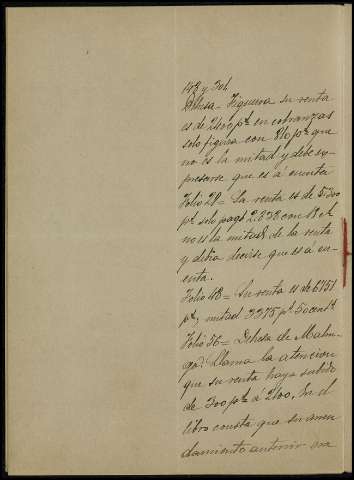 142 y 301
Dehesa-Figueroa su renta
es de 2400 pts en cobranzas
solo figura con 816 pts que
no es la mitad y debe es-
presarse que es a cuenta
Folio 29= La renta es de 5300
pts solo pagó 2.828 con
no es la mitad de la renta
y debia decirse que es á cu-
enta.
Folio 48= Su renta es de 6751
pts, mitad 3375 pts 50 cents
Folio 56= Dehesa de
Llama la atencion
que su renta haya subido
de 300 pts á 2100. En el
libro consta que su arren
damiento anterior era